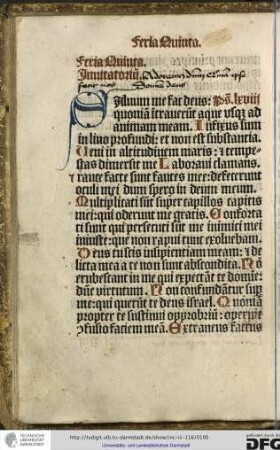 Feria Quinta.
Feria Quinta.
Inuitatoriũ. Adoremus dnm
Saluum me fac deus: Ps. lxviij
quoniã ĩtrauerũt aque vsqz ad
animam meam. Infixus sum
in limo profundi: et non est substantia.
Veni in altitudinem maris: ⁊ tempe-
stas dimersit me. Laboraui clamans.
rauce facte sunt fauces mee: defecerunt
oculi mei dum spero in deum meum.
Multiplicati sũt super capillos capitis
mei: qui oderunt me gratis. Confortа
ti sunt qui persecuti sũt me inimici mei
iniuste: que non rapui tunc exoluebam.
Deus tu scis insipientiam meam: ⁊ de-
licta mea a te non sunt abscondita. Nõ
erubescant in me qui expectãt te domie:
dñe virtutum. Non confundãtur sup
me: qui querũt te deus israel. Quoniã
propter te sustinui opprobriũ: operuit
cõfusio faciem meã. Extraneus factus
http://tudigit.ulb.tu-darmstadt.de/show/inc-iii-116/0100
Universitäts- und Landesbibliothek Darmstadt
TECHNISCHE
UNIVERSITÄT
DARMSTADT
DFG